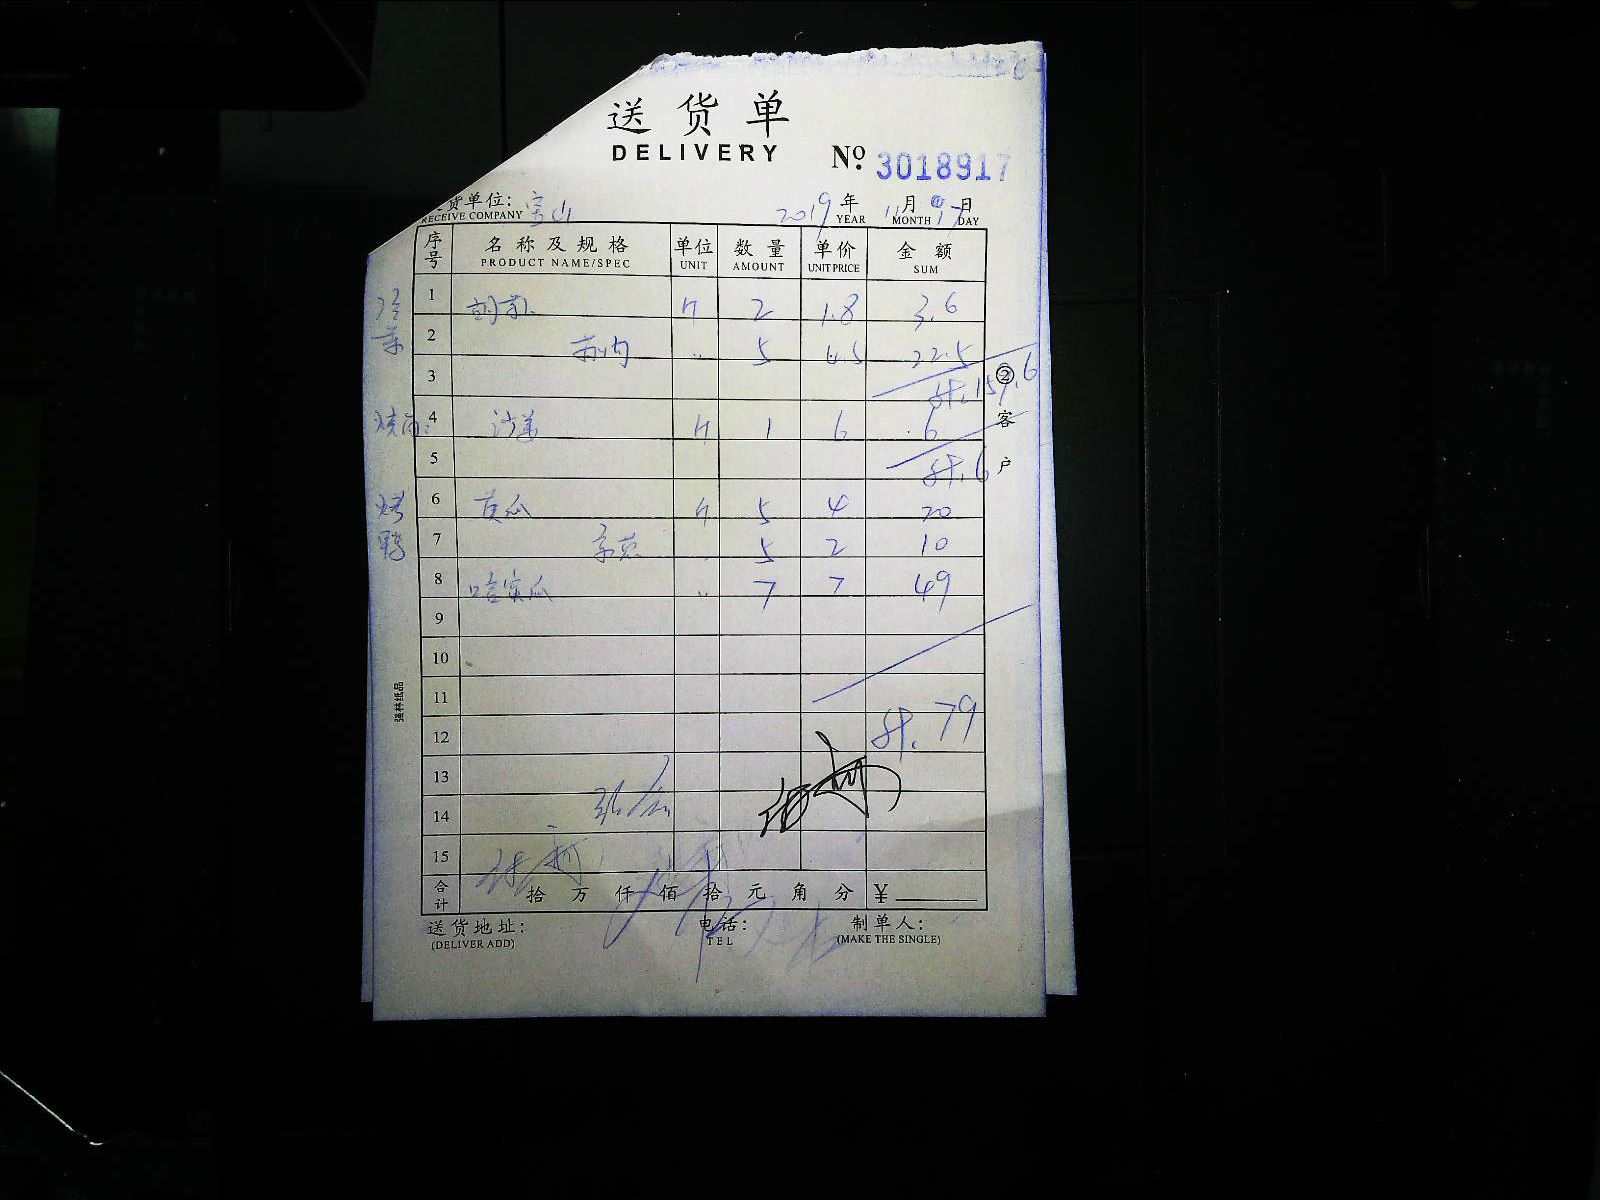 送货单
DELIVERY
No. 3018917
货单位: 宝山 2019年 11月 17日
RECEIVE COMPANY YEAR MONTH DAY
序号 名称及规格 单位 数量 单价 金额
PRODUCT NAME/SPEC UNIT AMOUNT UNIT PRICE SUM
1 斤 2 1.8 3.6
2 〃 5 4.5 22.5
3 计.159.6
② 客户
烧卤: 4 沙姜 斤 1 6 6
5 计.6
烤鸭 6 黄瓜 斤 5 4 20
7 京葱 5 2 10
8 哈密瓜 〃 7 7 49
9
10
11
12 计.79
13
14
15
合计 拾 万 仟 佰 拾 元 角 分 ¥
送货地址: 电话: 制单人:
(DELIVER ADD) TEL (MAKE THE SINGLE)
强林纸品